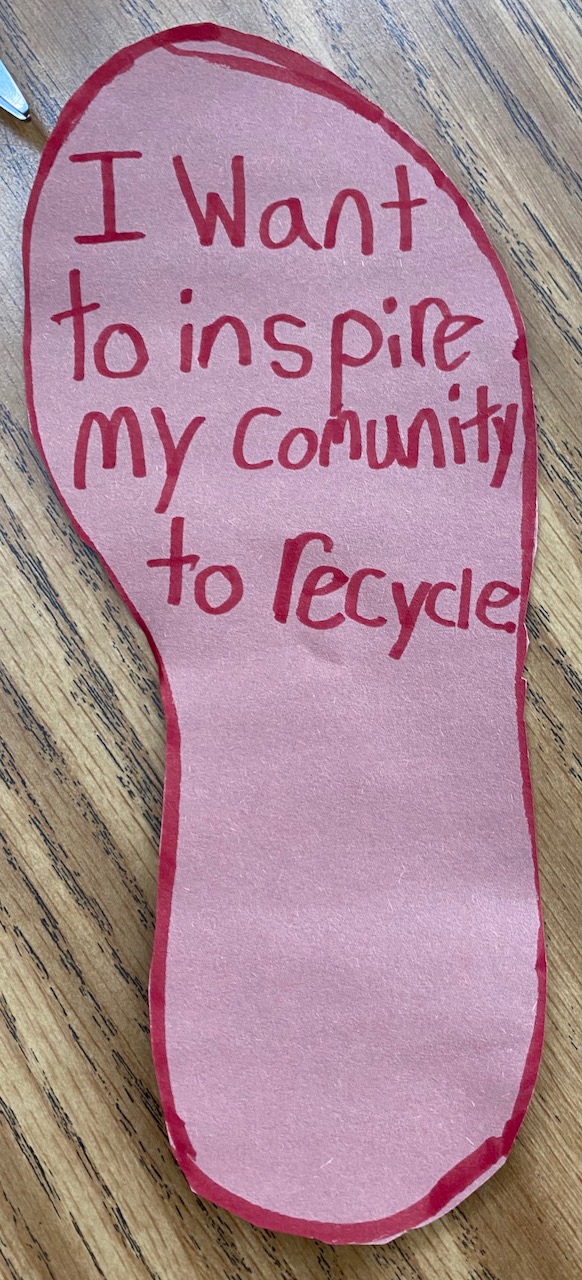 I Want
to inspire
my comunity
to recycle